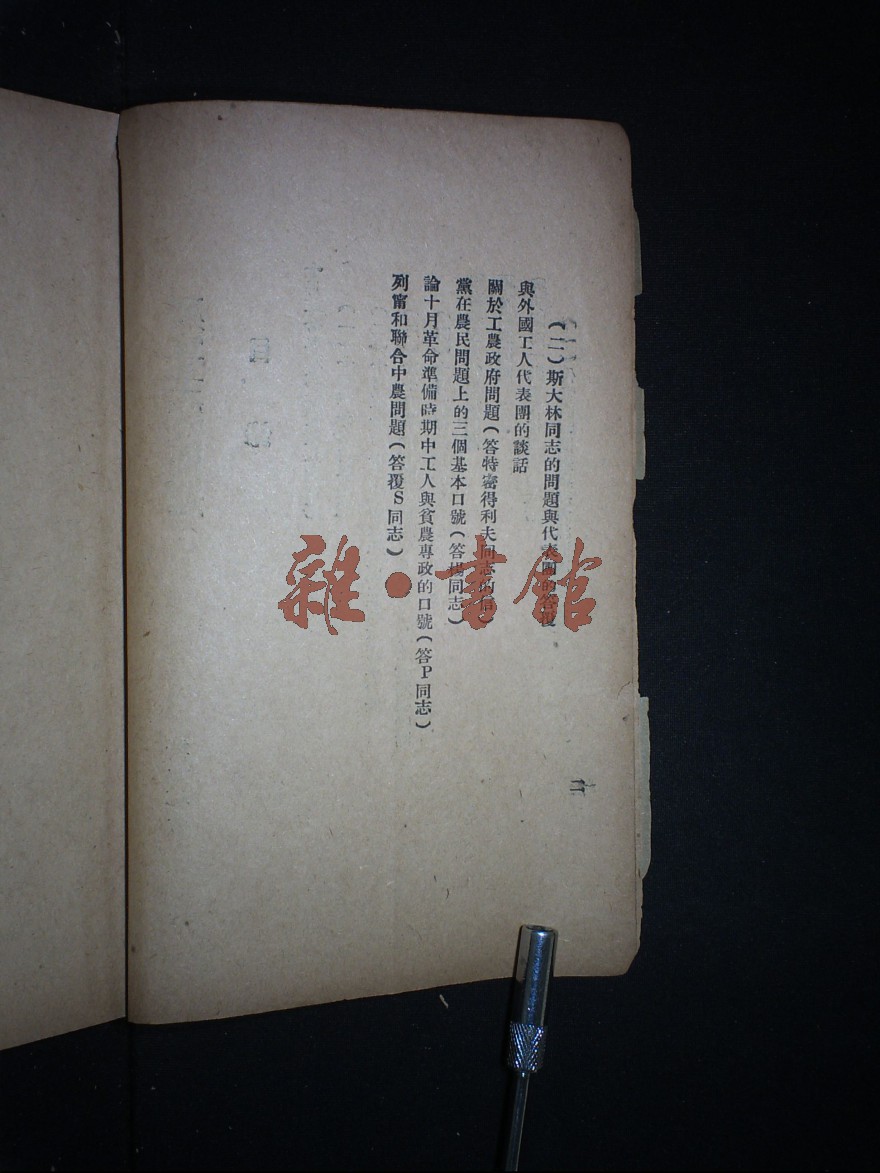 （二）斯大林同志的問題與代表團的答覆
與外國工人代表團的談話
關於工農政府問題（答特密得利夫同志的信）
黨在農民問題上的三個基本口號（答揚同志）
論十月革命準備時期中工人與貧農專政的口號（答P同志）
列甯和聯合中農問題（答覆S同志）
二
雜·書館